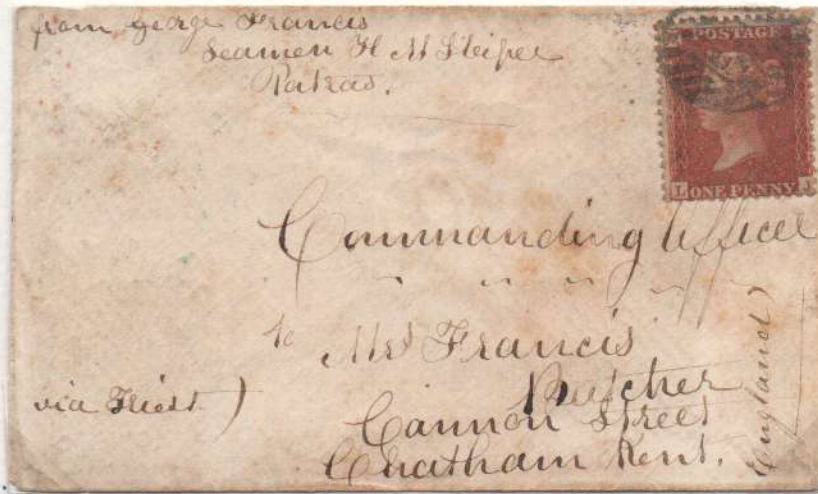 from George Francis
Seamen H M
Patras.
POSTAGE
L ONE PENNY J
Commanding Officer
to Mrs Francis
Butcher
Cannon Street
Chatham Kent.
England)
via Triest)